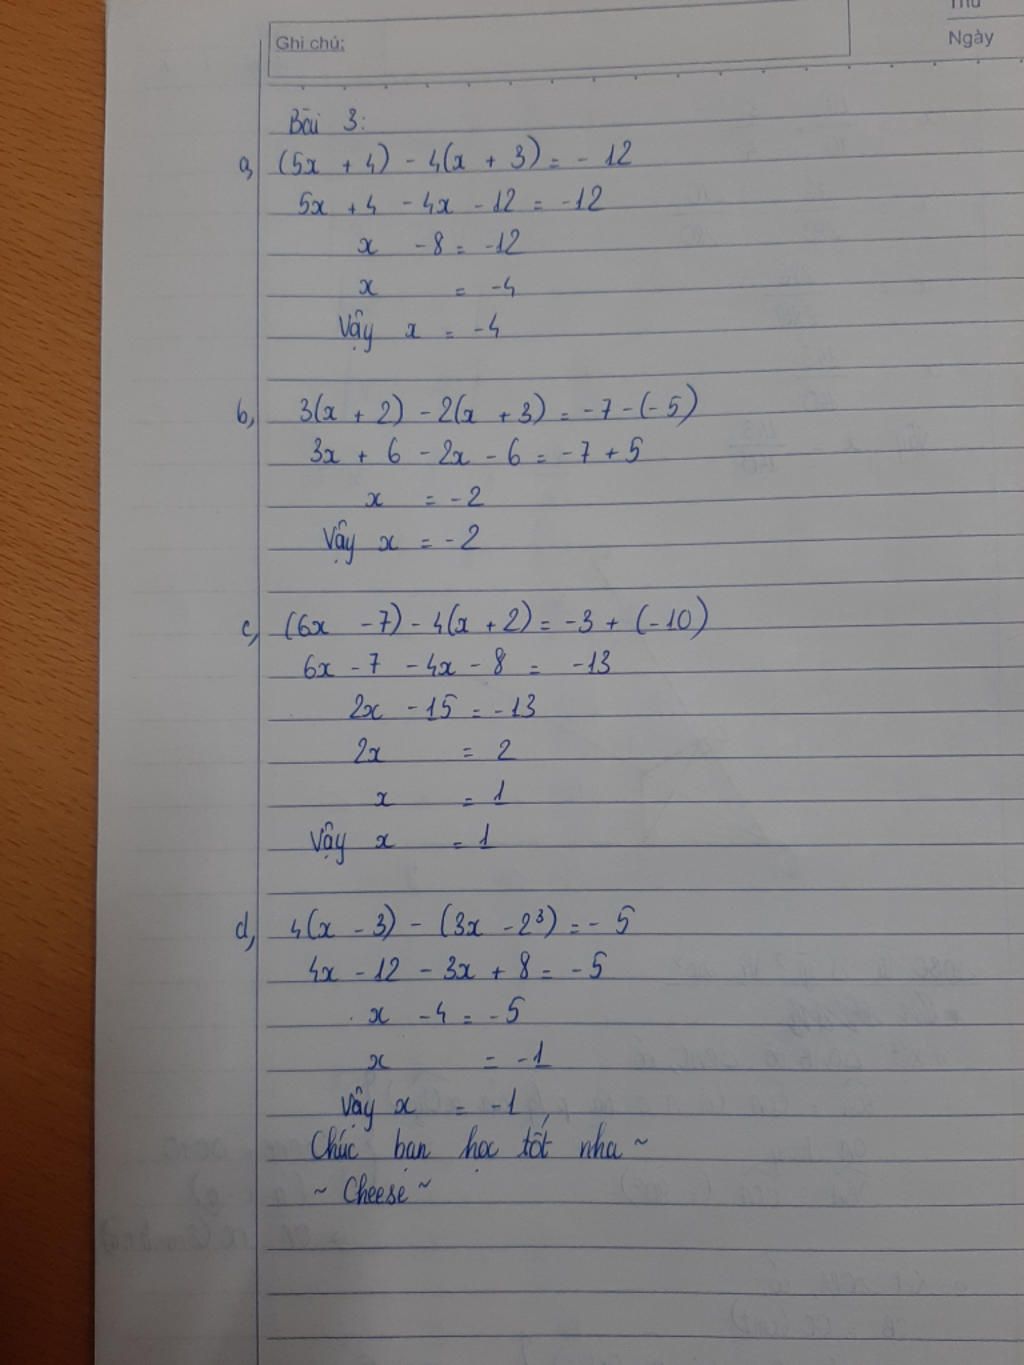 Thứ
Ghi chú:
Ngày
Bài 3:
a, (5x + 4) - 4(x + 3) = - 12
5x + 4 - 4x - 12 = -12
x - 8 = -12
x = -4
Vậy x = -4
b, 3(x + 2) - 2(x + 3) = -7 - (-5)
3x + 6 - 2x - 6 = -7 + 5
x = -2
Vậy x = -2
c, (6x - 7) - 4(x + 2) = -3 + (-10)
6x - 7 - 4x - 8 = -13
2x - 15 = -13
2x = 2
x = 1
Vậy x = 1
d, 4(x - 3) - (3x - 2³) = - 5
4x - 12 - 3x + 8 = -5
x - 4 = -5
x = -1
Vậy x = -1
Chúc bạn học tốt nha ~
~ Cheese ~